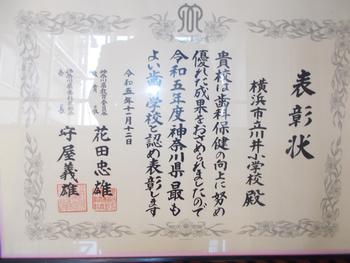 表彰状
横浜市立川井小学校 殿
貴校は歯科保健の向上に努め
優れた成果をおさめられましたので
令和五年度神奈川県最も
よい歯の学校と認め表彰します
令和五年十一月十二日
神奈川県教育委員会
教育長 花田忠雄
会長 守屋義雄